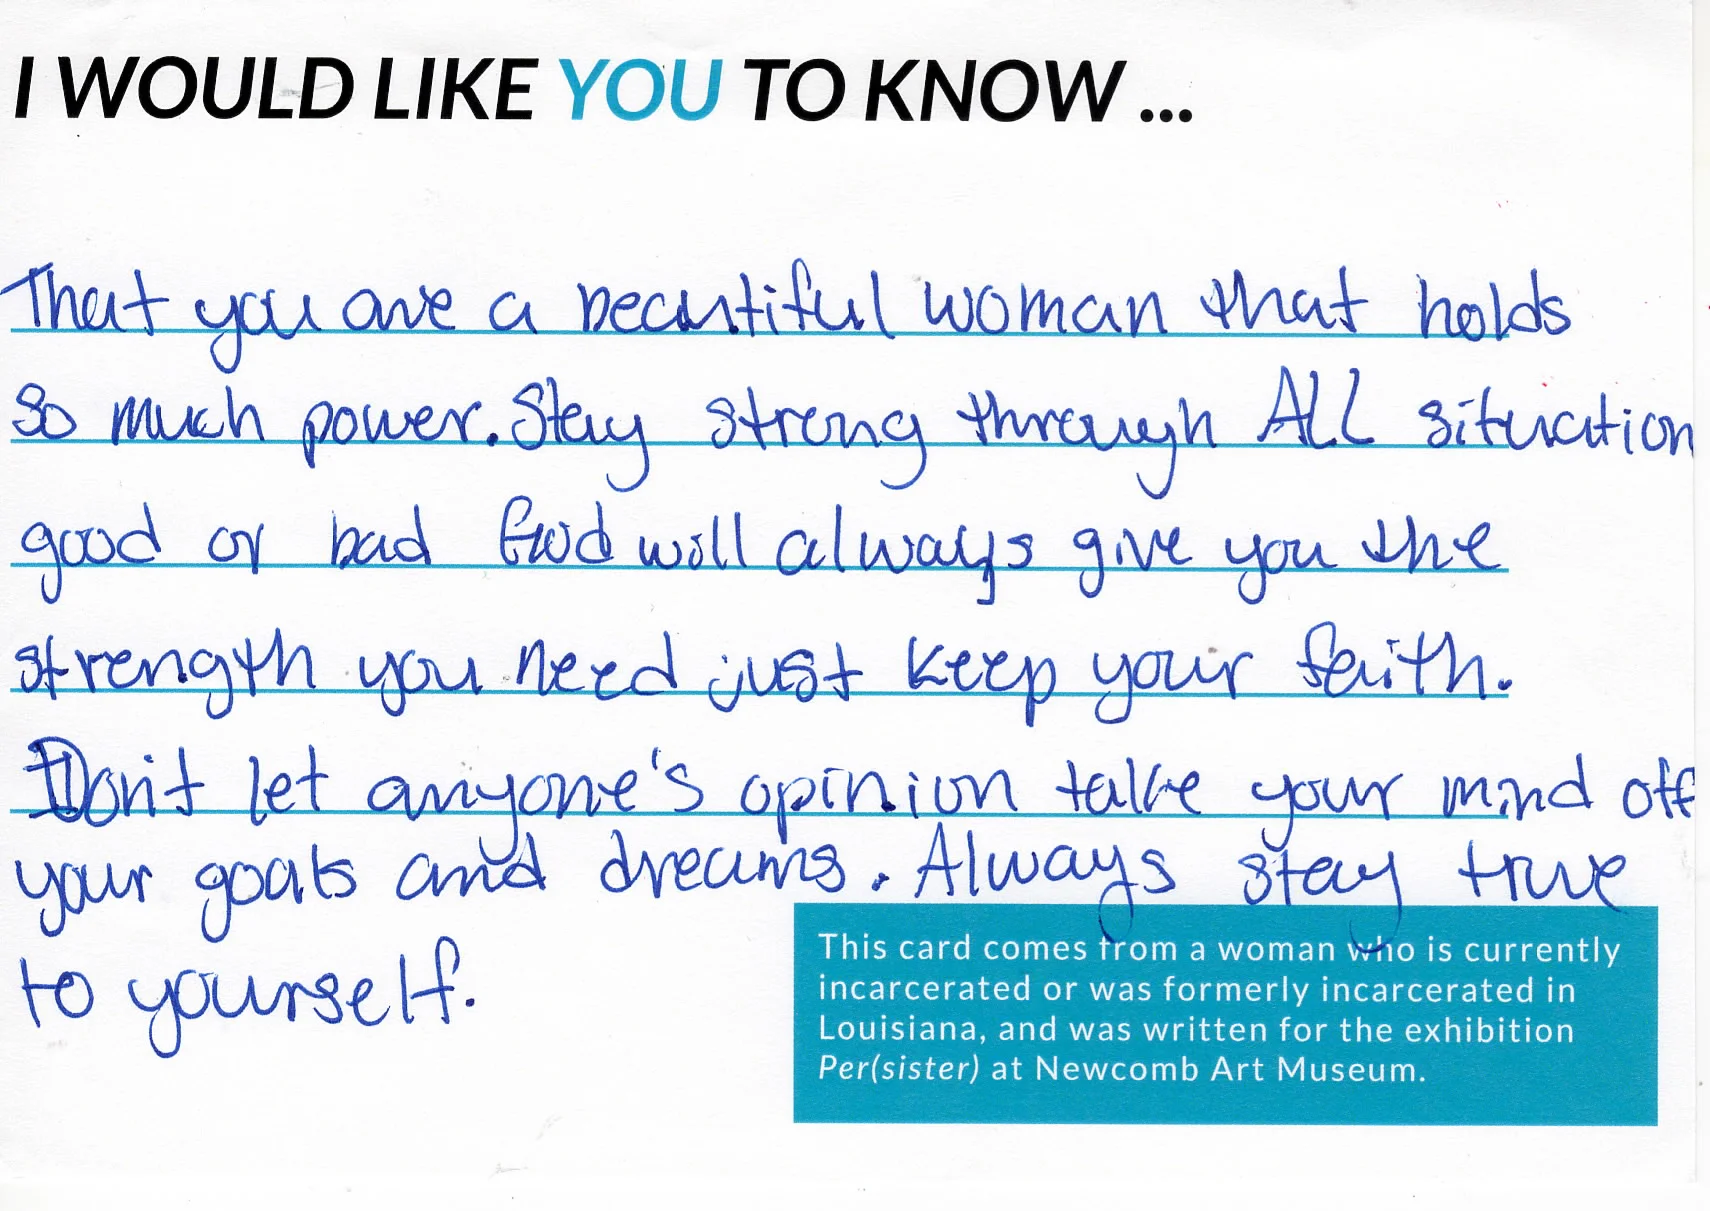 I WOULD LIKE YOU TO KNOW ...
That you are a beautiful woman that holds
so much power. Stay strong through ALL situation
good or bad God will always give you the
strength you need just keep your faith.
Don't let anyone's opinion take your mind off
your goals and dreams. Always stay true
to yourself.
This card comes from a woman who is currently
incarcerated or was formerly incarcerated in
Louisiana, and was written for the exhibition
Per(sister) at Newcomb Art Museum.